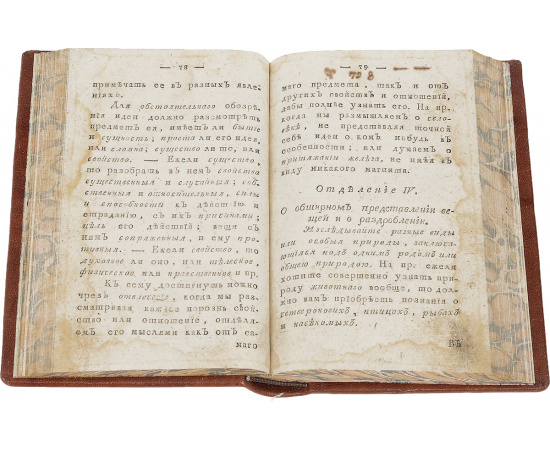 — 78 —
примѣчать ее въ разныхъ явле-
ніяхъ.
Для обстоятельнаго обозрѣ-
нія идеи должно разсмотрѣть
предметъ ея, имѣетъ ли бытіе
и сущность; проста ли его идея,
или сложна; существо ли то, или
свойство. — Ежели существо,
то разобрать въ немъ свойства
существенныя и случайныя; соб-
ственныя и относительныя, силы
и способности къ дѣйствію и
страданію, съ ихъ причинами;
цѣль его дѣйствій; вещи съ
нимъ сопряженныя, и ему про-
тивныя. — Ежели свойство, то
духовное ли оно, или тѣлесное,
физическое или нравственное и пр.
Къ сему достигнуть можно
чрезъ отвлеченіе, когда мы раз-
сматривая каждое порознь свой-
ство или отношеніе, отдѣля-
емъ его мыслями какъ отъ са-
маго
— 79 —
728
маго предмета, такъ и отъ
другихъ свойствъ и отношеній,
дабы полнѣе узнать его. На пр.
когда мы размышляемъ о чело-
вѣкѣ, не представляя точной
себѣ идеи о комъ нибудь въ
особенности; или думаемъ о
притяжаніи желѣза, не имѣя въ
виду никакого магнита.
Отдѣленіе IV.
О обширномъ представленіи ве-
щей и о раздробленіи.
Изслѣдывайте разные виды
или особыя природы, заключаю-
щіяся подъ однимъ родомъ или
общею природою. На пр. ежели
хотите совершенно узнать при-
роду животнаго вообще, то дол-
жно вамъ пріобрѣсть познанія о
четвероногихъ, птицахъ, рыбахъ
и насѣкомыхъ.
Въ